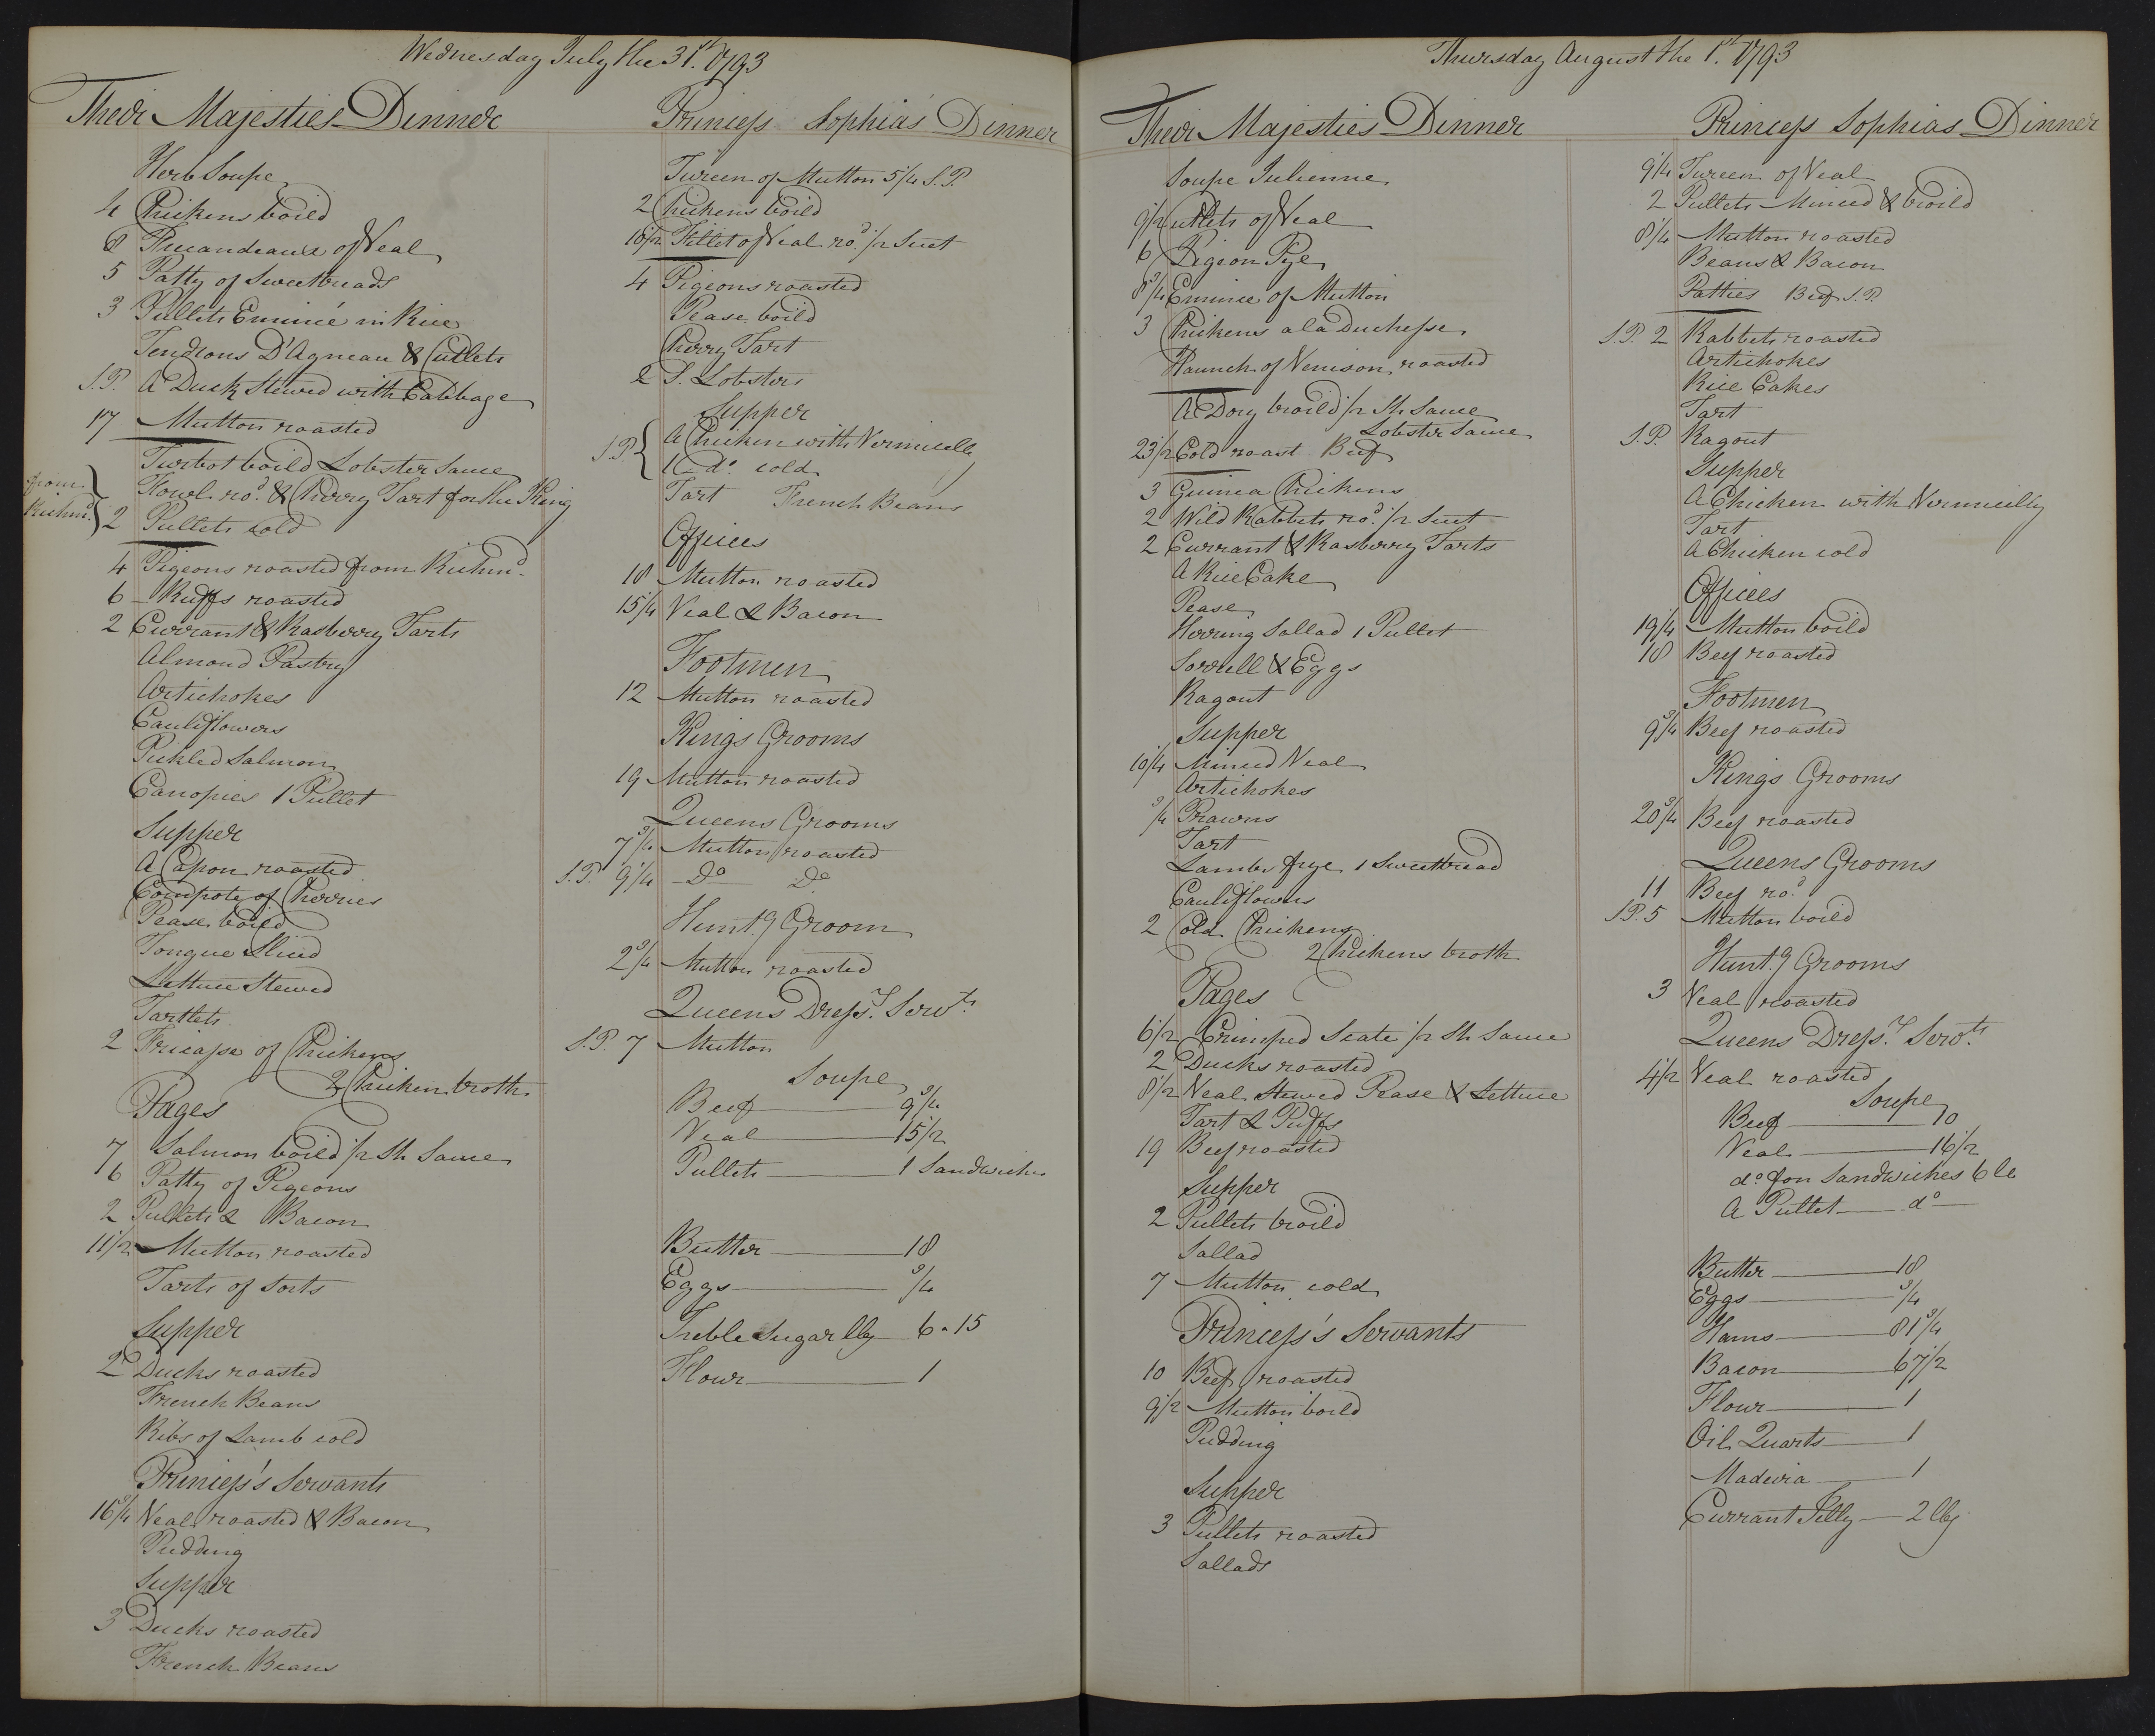 Wednesday July the 31st. 1793
Their Majesties Dinner
Herb Soupe
4 Chickens boild
8 Fricandeaux of Veal
5 Patty of Sweetbreads
3 Pullets Emincé in Rice
Tendrons D'Agneau & Cutlets
S.P. A Duck Stewed with Cabbage
17 Mutton roasted
Turbot boild Lobster Sauce
from Richmd. } Fowl rod. & Cherry Tart for the King
2 Pullets cold
4 Pigeons roasted from Richmd.
6 Ruffs roasted
2 Currant & Rasberry Tarts
Almond Pastry
Artichokes
Cauliflowers
Pickled Salmon
Canopies 1 Pullet
Supper
A Capon roasted
Compote of Cherries
Pease boild
Tongue Sliced
Lettuce Stewed
Tartlets
2 Fricasse of Chickens
2 Chicken broth
Pages
7 Salmon boild /2 Sh Sauce
6 Patty of Pigeons
2 Pullets & Bacon
11 1/2 Mutton roasted
Tarts of Sorts
Supper
2 Ducks roasted
French Beans
Ribs of Lamb cold
Princess's Servants
16 3/4 Veal roasted & Bacon
Pudding
Supper
3 Ducks roasted
French Beans
Princess Sophia's Dinner
Tureen of Mutton 5 1/4 S.P.
2 Chickens boild
18 1/2 Fillet of Veal rod. /2 Suet
4 Pigeons roasted
Pease boild
Cherry Tart
2 S. Lobsters
Supper
S.P. { A Chicken with Vermicelly
1 do. cold
Tart French Beans
Offices
18 Mutton roasted
15 1/4 Veal & Bacon
Footmen
12 Mutton roasted
Kings Grooms
19 Mutton roasted
Queens Grooms
7 3/4 Mutton roasted
S.P. 9 1/4 Do Do
Hunt.g Groom
2 3/4 Mutton roasted
Queens Dress.s Servts
S.P. 7 Mutton
Soupe
Beef 9 3/4
Veal 15 1/2
Pullets 1 Sandwiches
Butter 18
Eggs 3/4
Treble Sugar lbs 6-15
Flour 1
Thursday August the 1st. 1793
Their Majesties Dinner
Soupe Julienne
9 1/2 Cutlets of Veal
6 Pigeon Pye
8 3/4 Emince of Mutton
3 Chickens a la Duchesse
Haunch of Venison roasted
A Dory broild /2 Sh Sauce
Lobster Sauce
23 1/2 Cold roast Beef
3 Guinea Chickens
2 Wild Rabbets rod. /2 Suet
2 Currant & Rasberry Tarts
A Rice Cake
Pease
Herring Sallad 1 Pullet
Sorrell & Eggs
Ragout
Supper
10 1/4 Minced Veal
Artichokes
3/4 Prawns
Tart
Lambs frye 1 Sweetbread
Cauliflowers
2 Cold Chickens
2 Chickens broth
Pages
6 1/2 Crimped Scate /2 Sh Sauce
2 Ducks roasted
8 1/2 Veal Stewed Pease & Lettuce
Tart & Puffs
19 Beef roasted
Supper
2 Pullets broild
Sallad
7 Mutton cold
Princess's Servants
10 Beef roasted
9 1/2 Mutton boild
Pudding
Supper
3 Pullets roasted
Sallads
Princess Sophias Dinner
9 1/4 Tureen of Veal
2 Pullets Minced & broild
8 1/4 Mutton roasted
Beans & Bacon
Patties Beef S.P.
S.P. 2 Rabbets roasted
Artichokes
Rice Cakes
Tart
S.P. Ragout
Supper
A Chicken with Vermicelly
Tart
A Chicken cold
Offices
19 1/4 Mutton boild
18 Beef roasted
Footmen
9 3/4 Beef roasted
Kings Grooms
20 3/4 Beef roasted
Queens Grooms
11 Beef rod.
S.P. 5 Mutton boild
Hunt.g Grooms
3 Veal roasted
Queens Dress.s Servts
4 1/2 Veal roasted
Soupe
Beef 10
Veal 16 1/2
do. for Sandwiches 6 lb
A Pullet do
Butter 18
Eggs 3/4
Hams 81 3/4
Bacon 67 1/2
Flour 1
Oil Quarts 1
Madeira 1
Currant Jelly 2 lbs